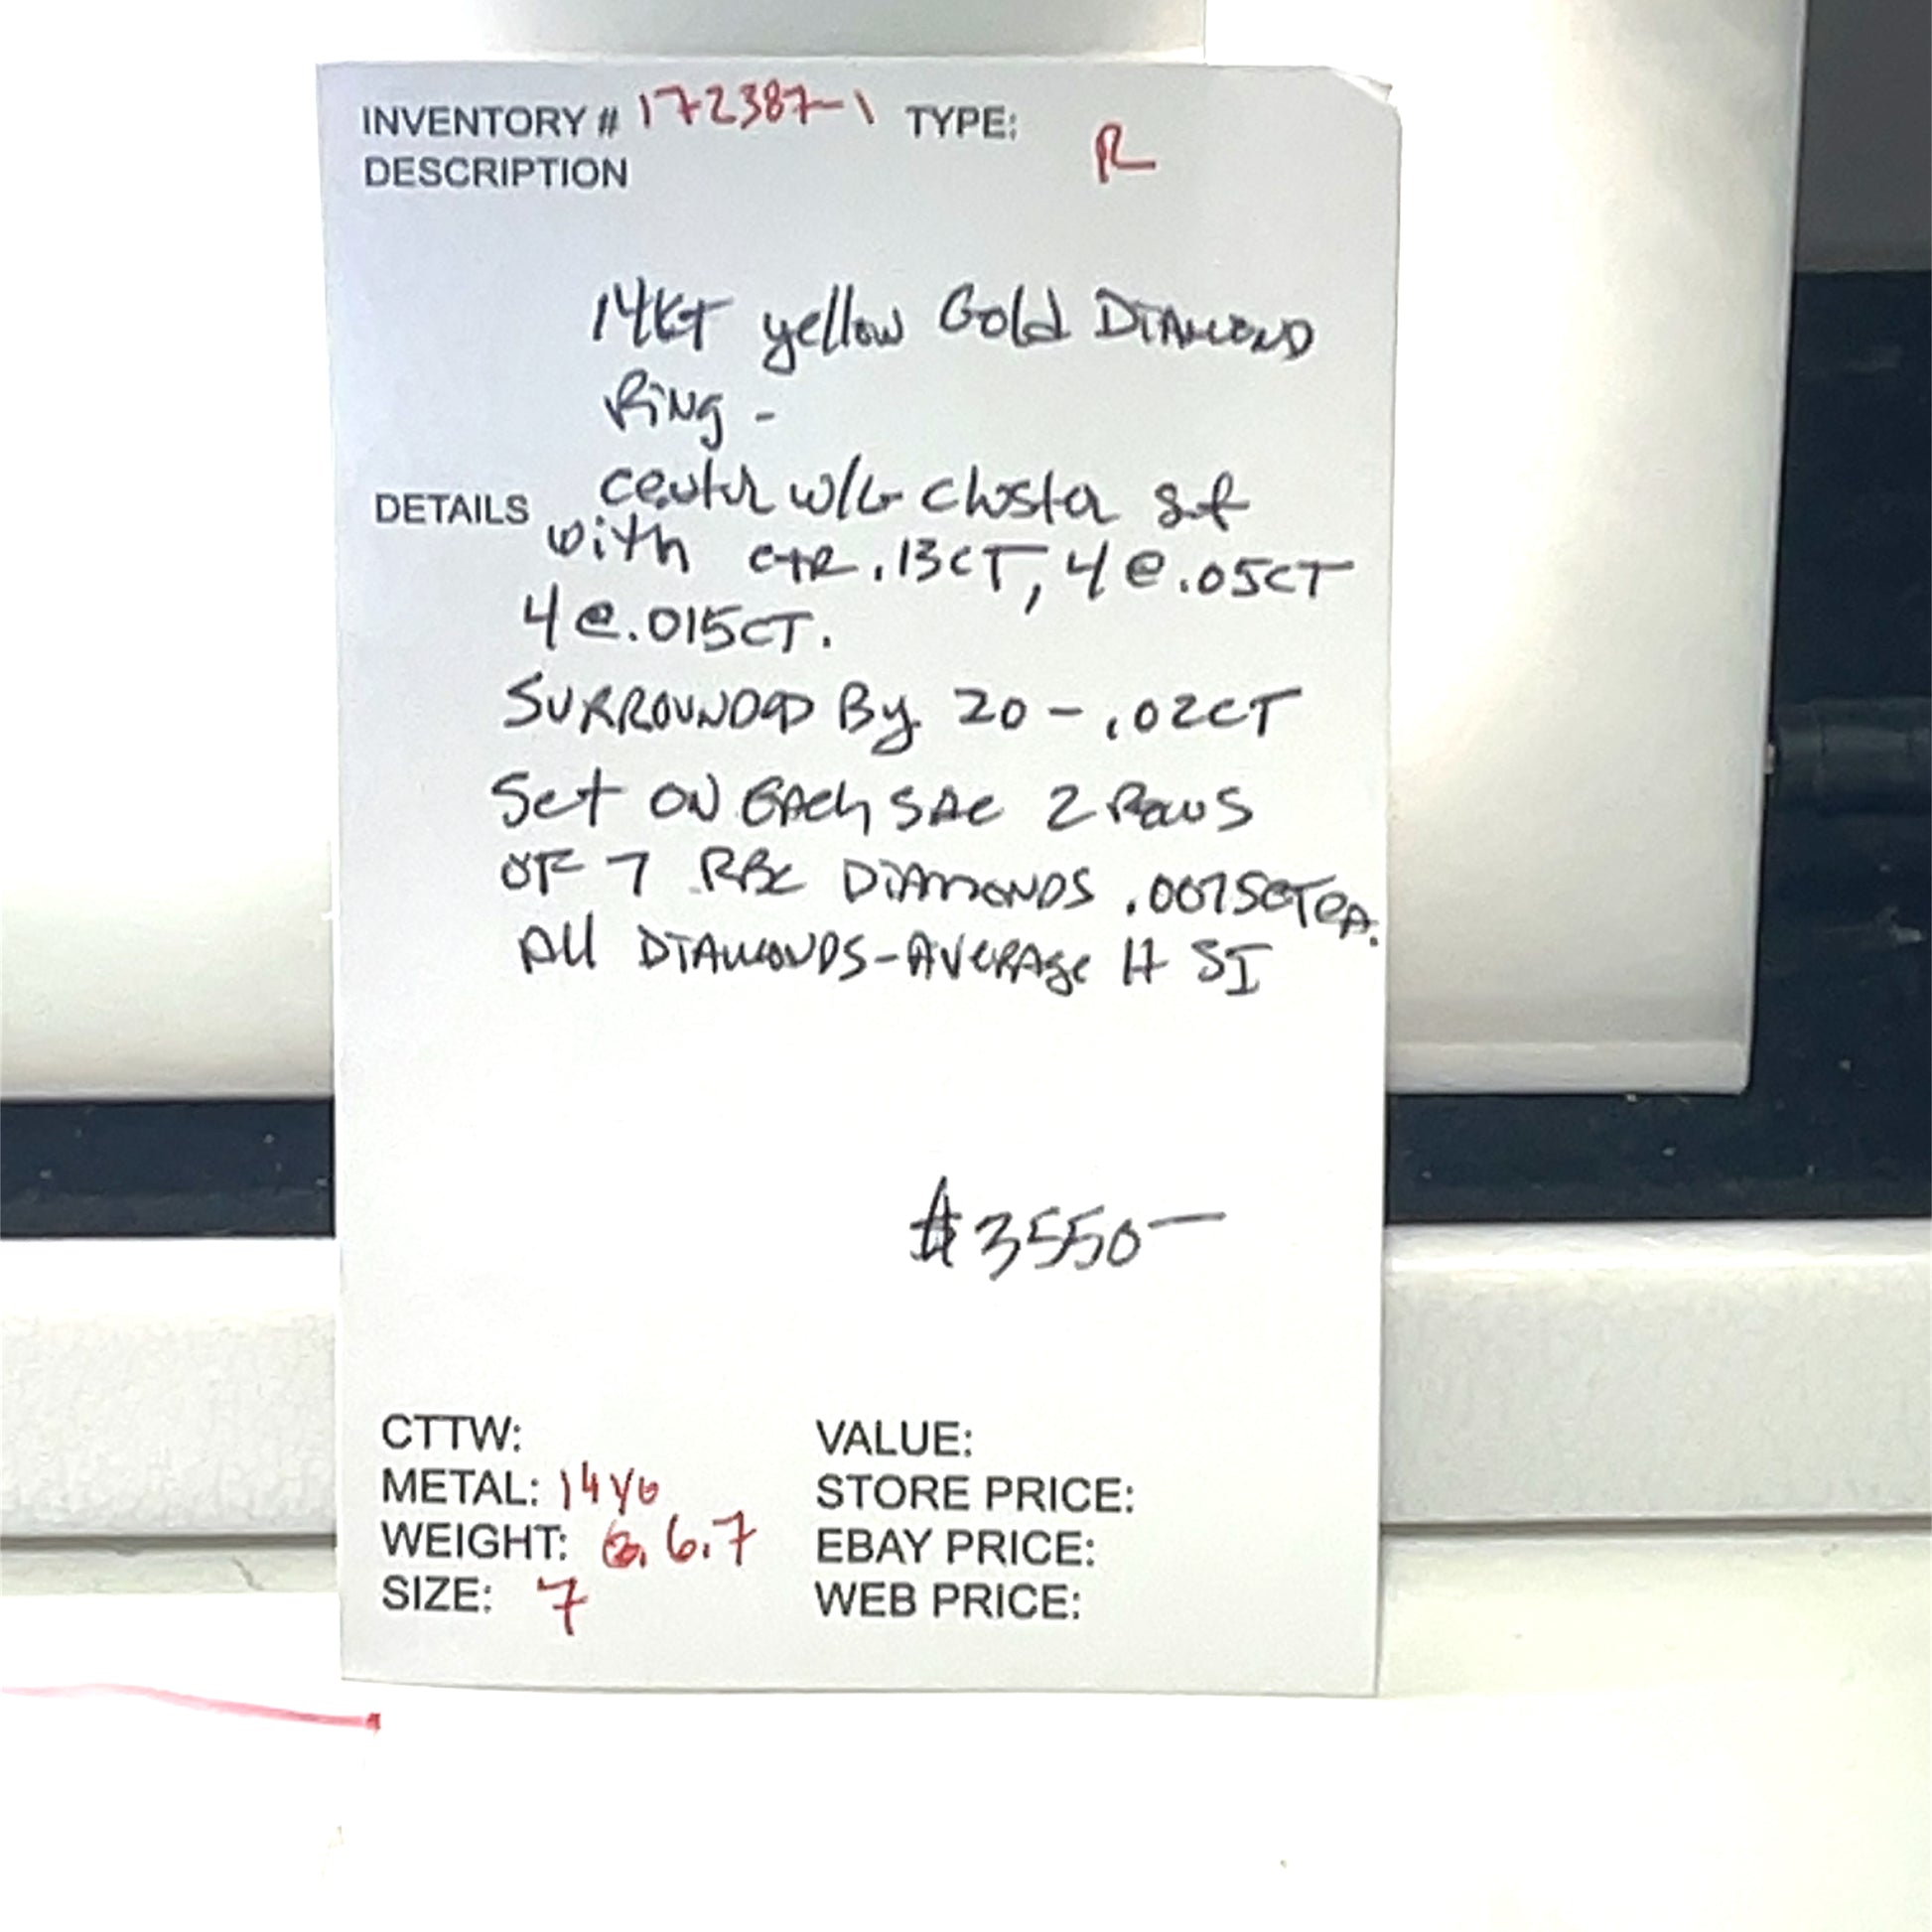 INVENTORY # 172387-1 TYPE: R
DESCRIPTION
14KT yellow Gold DIAMOND
Ring -
center w/G cluster set
DETAILS
with CTR .13CT, 4 @ .05CT
4 @ .015CT.
SURROUNDED By 20 - .02CT
Set ON EACH SIDE 2 ROWS
OF 7 RBC DIAMONDS .0075CT EA.
All DIAMONDS - AVERAGE H SI
$3550-
CTTW:
VALUE:
METAL: 14YG
STORE PRICE:
WEIGHT: 6.7
EBAY PRICE:
SIZE: 7
WEB PRICE: